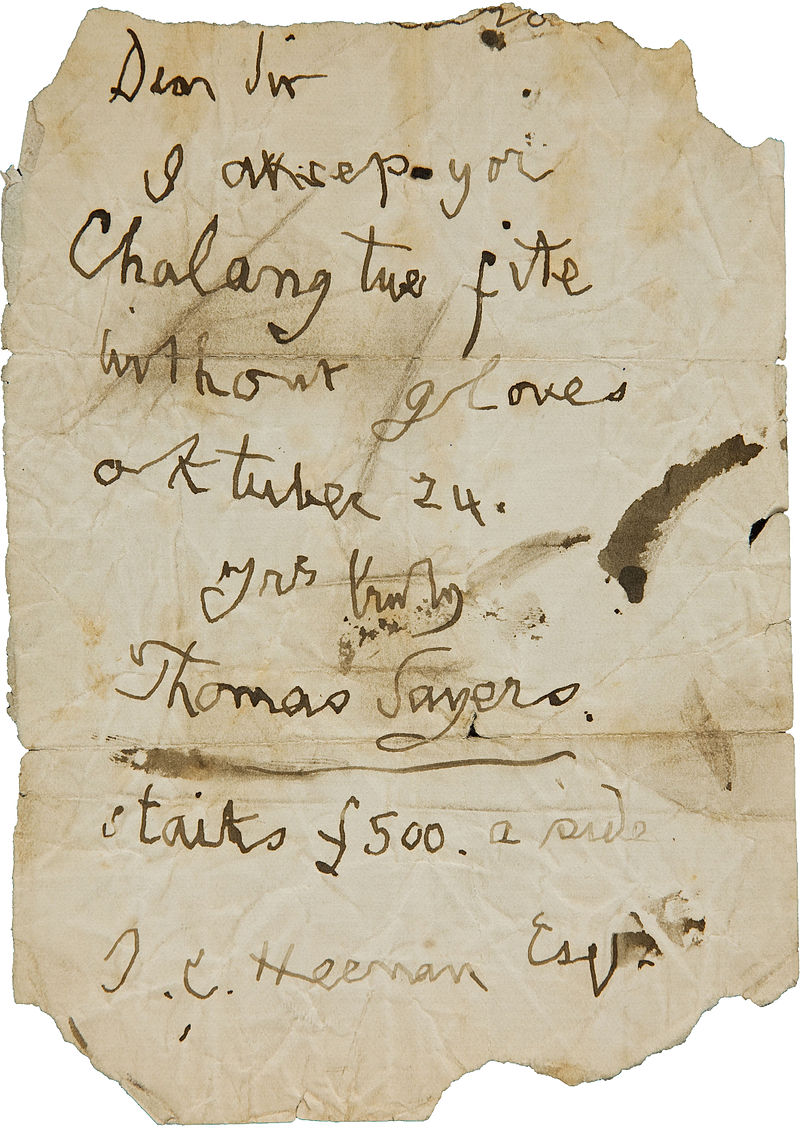 Dear Sir
I aksep yor
Chalang tue fite
without gloves
oktuber 24.
Yrs truly
Thomas Sayers.
staiks £500. a side
J. C. Heenan Esqr